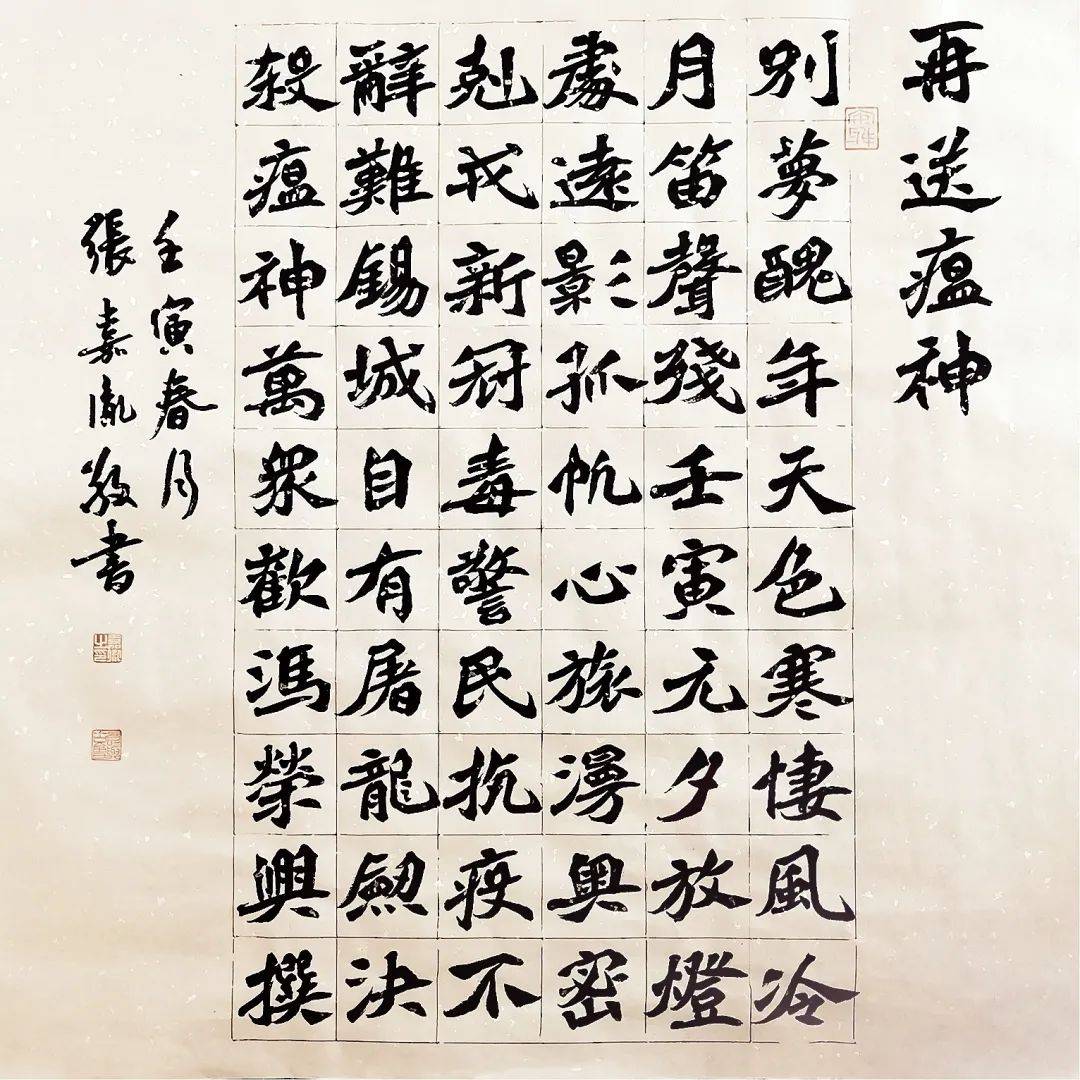 再送瘟神
別夢醜年天色寒悽風冷
月笛聲殘壬寅元夕放燈
處遠影孤帆心旅漫奧密
尅戎新冠毒警民抗疫不
辭難錫城自有屠龍劒決
殺瘟神萬衆歡馮榮興撰
壬寅春月
張嘉胤敬書